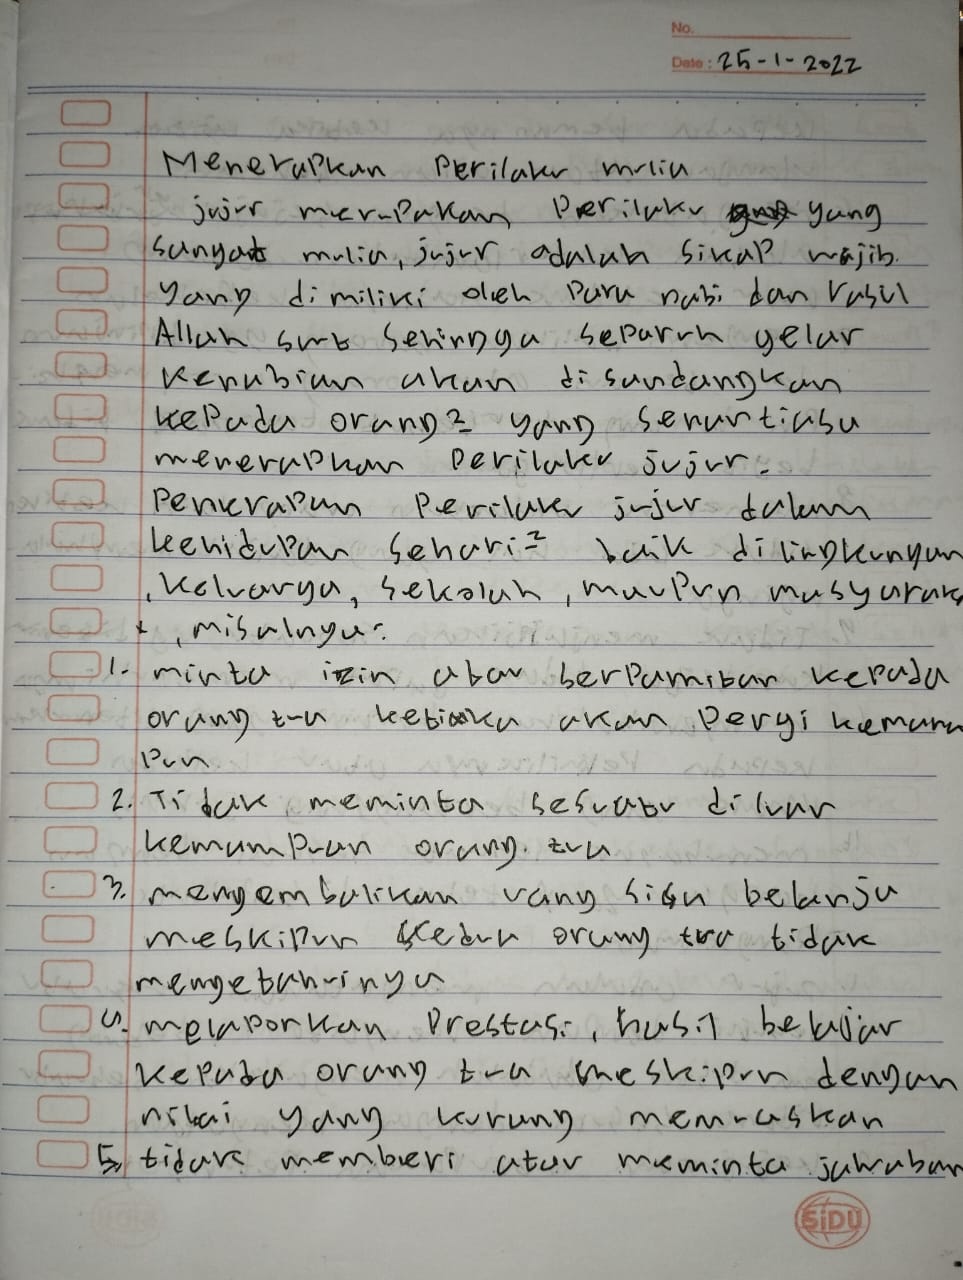 No.
Date: 25-1-2022
Menerapkan Perilaku mulia
jujur merupakan Perilaku yang
sangat mulia, jujur adalah sikap wajib
yang dimiliki oleh para nabi dan rasul
Allah swt sehingga separuh gelar
kenabian akan disandangkan
kepada orang2 yang senantiasa
menerapkan perilaku jujur.
Penerapan Perilaku jujur dalam
kehidupan sehari2 baik dilingkungan
, keluarga, sekolah, maupun masyarak
t, misalnya:
1. minta izin atau berpamitan kepada
orang tua ketika akan pergi kemana
pun
2. Tidak meminta sesuatu diluar
kemampuan orang tua
3. mengembalikan uang sisa belanja
meskipun kedua orang tua tidak
mengetahuinya
4. melaporkan Prestasi, hasil belajar
kepada orang tua meskipun dengan
nilai yang kurang memuaskan
5, tidak memberi atau meminta jawaban
SiDU